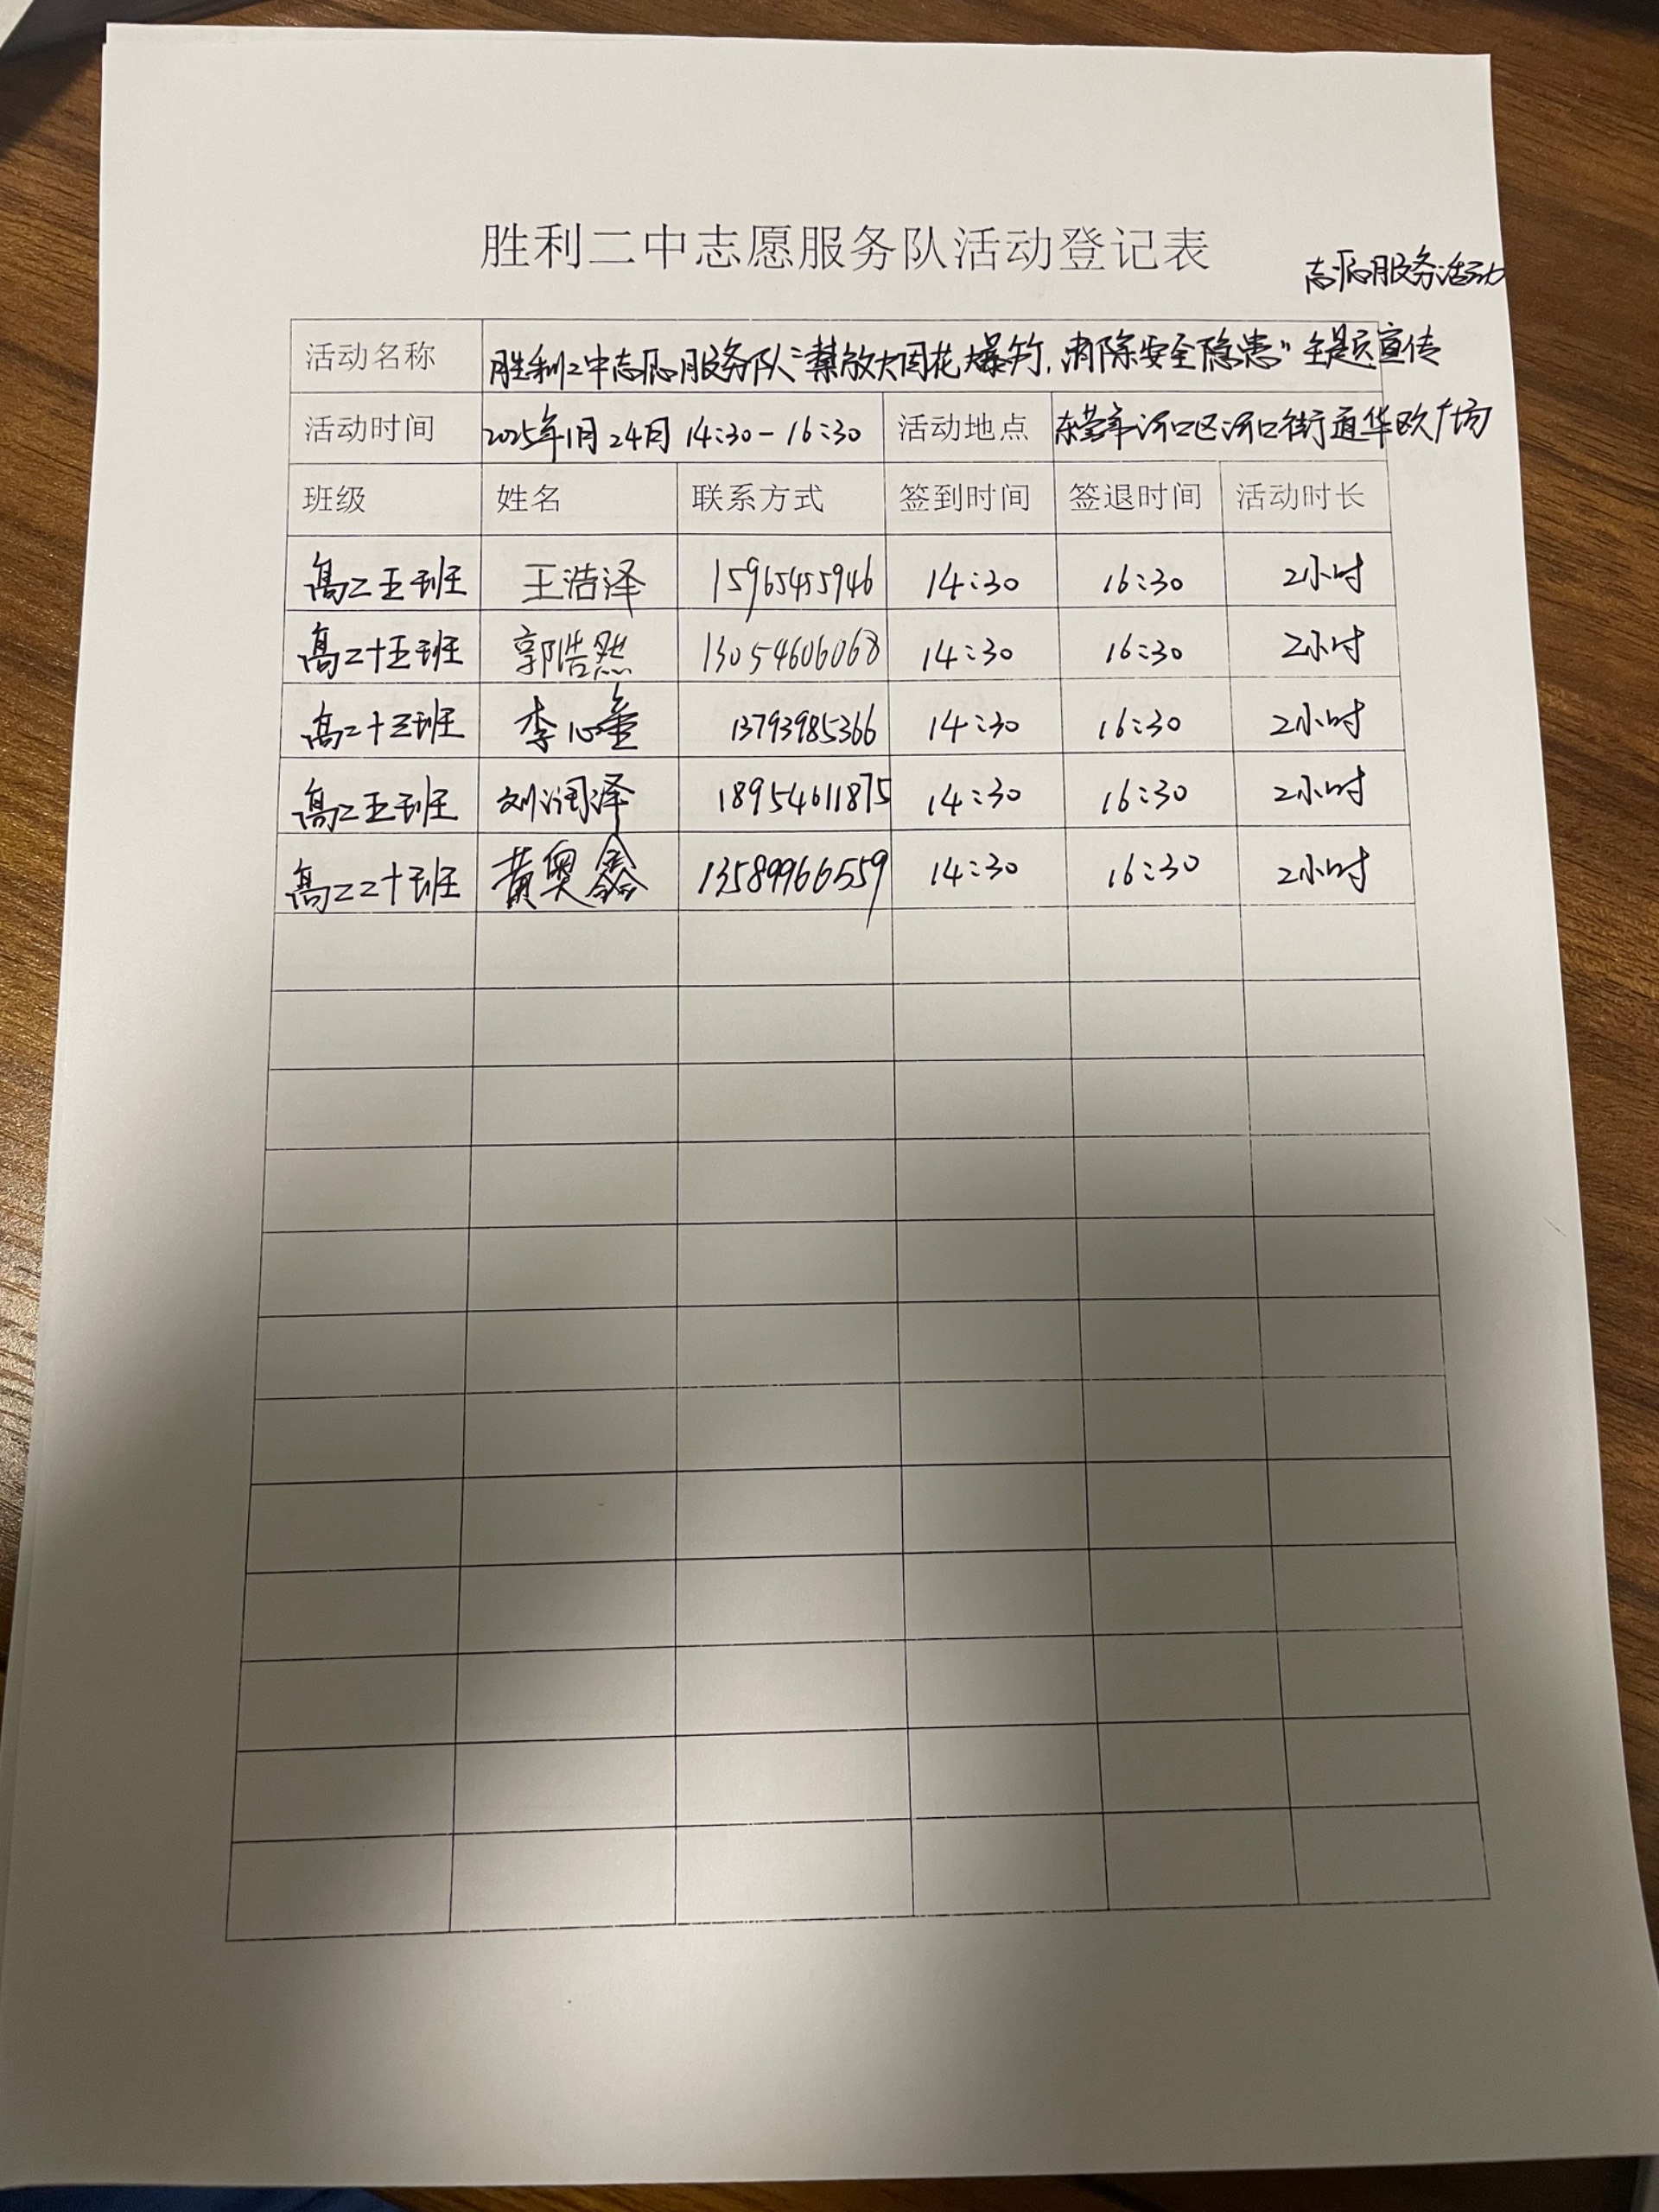 胜利二中志愿服务队活动登记表
志愿服务活动
活动名称 胜利二中志愿服务队“禁放大烟花爆竹,消除安全隐患”主题宣传
活动时间 2025年1月24日 14:30-16:30 活动地点 东营市河口区河口街道华欧广场
班级 姓名 联系方式 签到时间 签退时间 活动时长
高二五班 王浩泽 15965455946 14:30 16:30 2小时
高二十五班 郭浩然 13054606068 14:30 16:30 2小时
高二十三班 李心 13793985366 14:30 16:30 2小时
高二五班 刘润泽 18954611875 14:30 16:30 2小时
高二二十班 黄奥鑫 13589966559 14:30 16:30 2小时